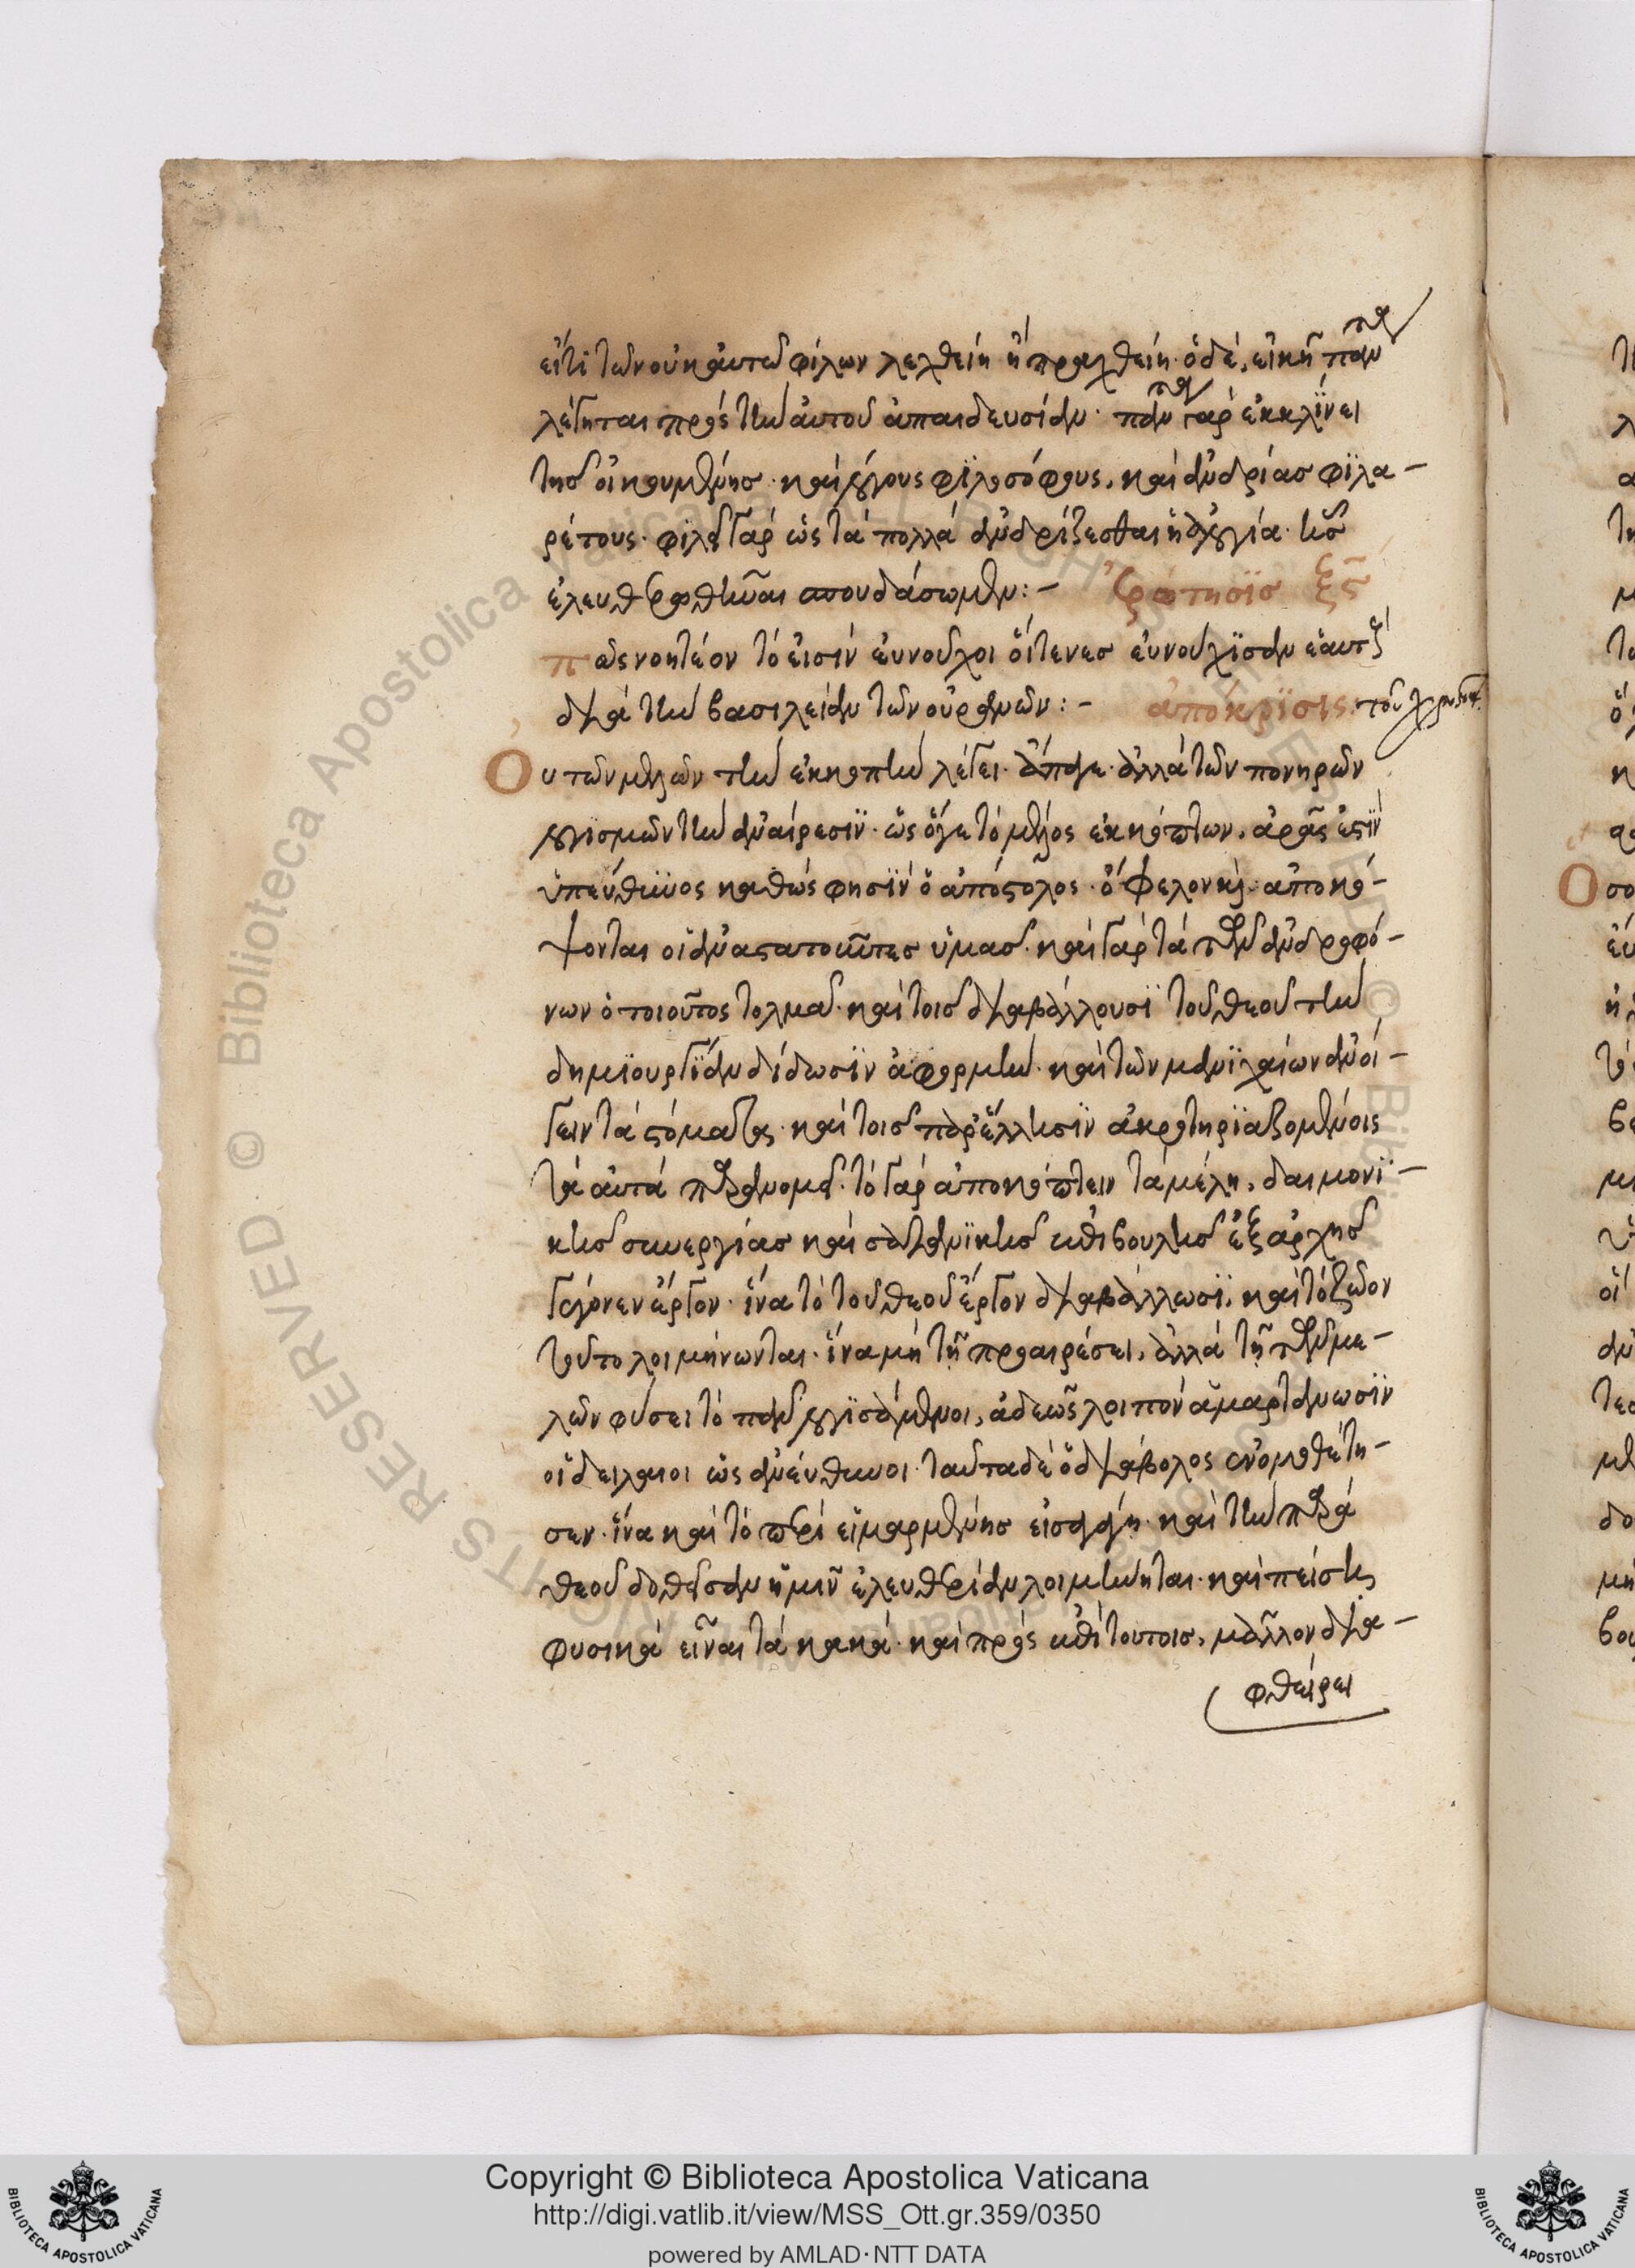 εἴτι τῶν οὐκ αὐτῶ φίλων λεχθείη ἢ πραχθείη· ὁ δὲ, εἰκῆ πᾶν
λέγηται πρὸς τὴν αὐτοῦ ἀπαιδευσίαν· πᾶν γὰρ ἐκκλίνει
τῆς οἰκουμένης· καὶ λόγους φιλοσόφους, καὶ ἀνδρίας φϊλα-
ρέτους· φιλεῖ γὰρ ὡς τὰ πολλὰ ἀνδρίζεσθαι ἡ ἀλογία· ἧς
ἐλευθερωθῆναι σπουδάσωμεν:- Ἐρώτησϊς ξς
πῶς νοητέον τὸ εἰσὶν εὐνοῦχοι οἵτενες εὐνούχϊσαν ἑαυτοὺς
διὰ τὴν βασιλείαν τῶν οὐρανῶν:- ἀπόκρϊσις· τοῦ χρυσοστ
Οὐ τῶν μελῶν τὴν ἐκκοπὴν λέγει· ἄπαγε· ἀλλὰ τῶν πονηρῶν
λογϊσμῶν τὴν ἀναίρεσϊν· ὡς ὅγε τὸ μέλος ἐκκόπτων, ἀρᾶς ἐστϊν
ὑπεύθυνος καθώς φησϊν ὁ ἀπόστολος· ὄφελον καὶ ἀποκό-
ψονται οἱ ἀναστατοῦντες ὑμᾶς· καὶ γὰρ τὰ τῶν ἀνδροφό-
νων ὁ τοιοῦτος τολμᾶ· καὶ τοῖς διαβάλλουσϊ τοῦ θεοῦ τὴν
δημϊουργΐαν δίδωσϊν ἀφορμὴν· καὶ τῶν μανϊχαίων ἀνοί-
γειν τὰ στόματα· καὶ τοῖς παρ' ἕλλησϊν ἀκρωτηρϊαζομένοις
τὰ αὐτὰ παρανομεῖ· τὸ γὰρ ἀποκόπτειν τὰ μέλη, δαιμονϊ-
κῆς συνεργίας καὶ σατανϊκῆς ἐπιβουλῆς ἐξ ἀρχῆς
γέγονεν ἔργον· ἵνα τὸ τοῦ θεοῦ ἔργον διαβάλλωσϊ, καὶ τὸ ζῶον
τοῦτο λοιμήνωνται· ἵνα μὴ τῆ προαιρέσει, ἀλλὰ τῆ τῶν με-
λῶν φύσει τὸ πᾶν λογϊσάμενοι, ἀδεῶς λοιπὸν ἁμαρτάνωσϊν
οἱ δείλαιοι ὡς ἀνεύθυνοι· ταῦτα δὲ ὁ διάβολος ἐνομοθέτη-
σεν· ἵνα καὶ τὸ περὶ εἱμαρμένης εἰσαγάγη· καὶ τὴν παρὰ
θεοῦ δοθεῖσαν ἡμῖν ἐλευθερίαν λοιμήνηται· καὶ πείση
φυσικὰ εἶναι τὰ κακὰ· καὶ πρὸς ἐπὶ τούτοις, μᾶλλον δια-
φθείρει
Copyright © Biblioteca Apostolica Vaticana
http://digi.vatlib.it/view/MSS_Ott.gr.359/0350
powered by AMLAD·NTT DATA